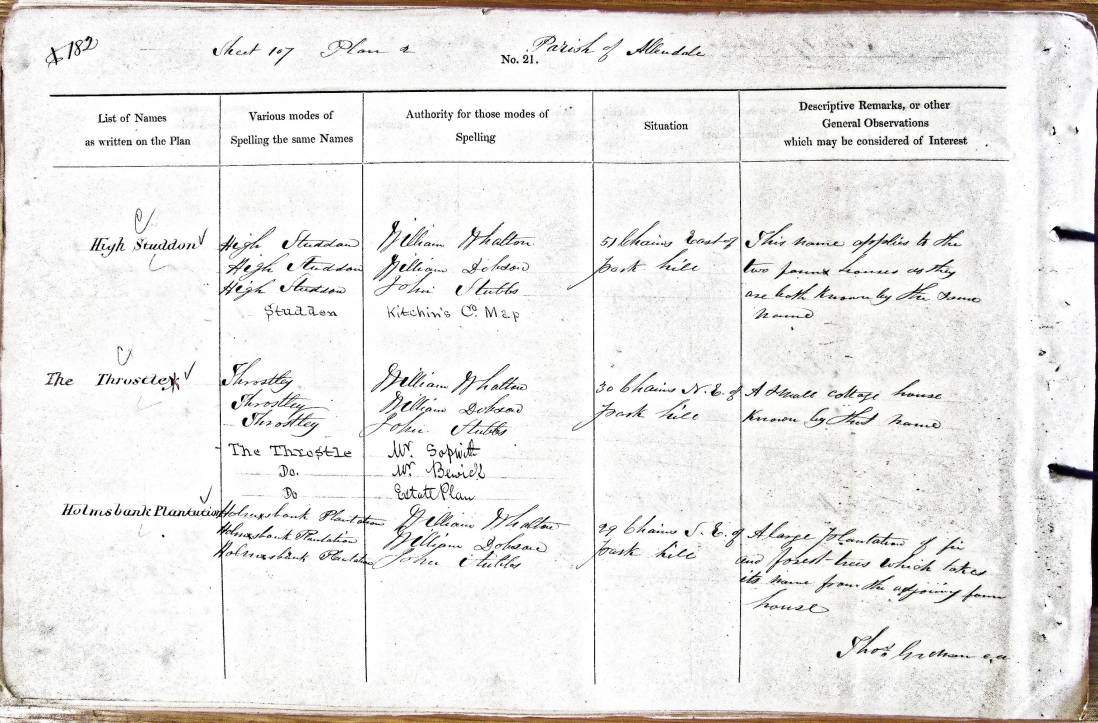 182
Sheet 107 Plan 2 Parish of Allendale
No. 21.
List of Names as written on the Plan
Various modes of Spelling the same Names
Authority for those modes of Spelling
Situation
Descriptive Remarks, or other General Observations which may be considered of Interest
High Studdon High Studdon William Whalton 51 Chains East of This name applies to the
High Studdon William Dobson park hill two farm houses as they
High Studdon John Stubbs are both known by the same
Studdon Kitchin's Co. Map name
The Throstle Throstley William Whalton 30 Chains N.E. of A small cottage house
Throstley William Dobson park hill known by this name
Throstley John Stubbs
The Throstle Mr. Sopwith
Do. Mr. Bewick
Do Estate Plan
Holmsbank Plantation Holmsbank Plantation William Whalton 29 Chains S.E. of A large plantation of fir
Holmsbank Plantation William Dobson park hill and forest-trees which takes
Holmsbank Plantation John Stubbs its name from the adjoining farm
house
Thos.